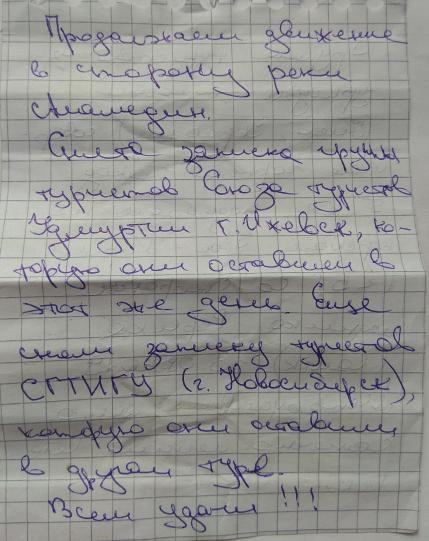 Продолжаем движение
в сторону реки
Аламедин.
Снята записка группы
туристов Союза туристов
Удмуртии г. Ижевск, ко-
торую они оставили в
этот же день. Еще
сняли записку туристов
СГТИГУ (г. Новосибирск),
которую они оставили
в другом туре.
Всем удачи !!!